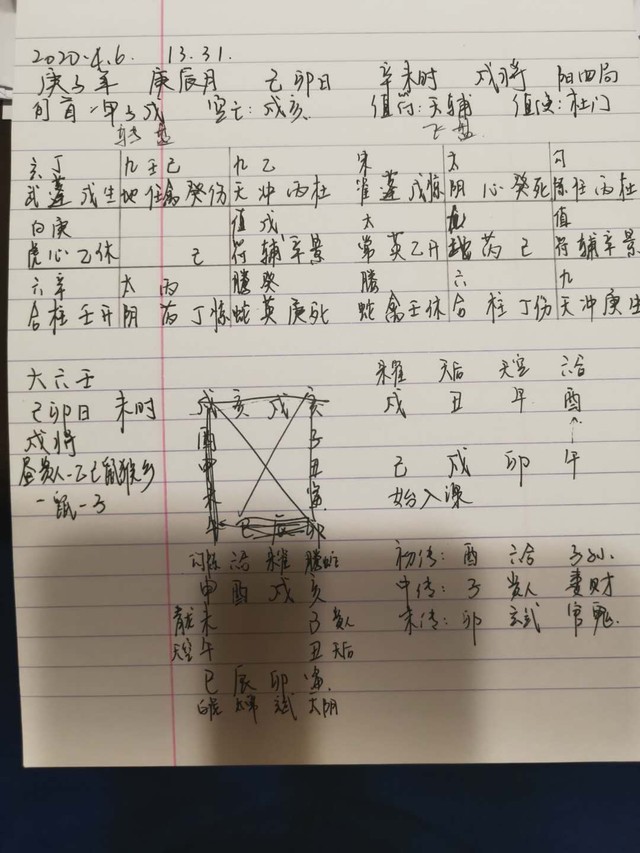 2020.4.6. 13.31.
庚子年 庚辰月 己卯日 辛未时 戌将 阳四局
旬首:甲子戌 空亡:戌亥 值符:天辅 值使:杜门
转盘 飞盘
六丁 九壬己 九乙 朱 太 勾
武蓬戊生 地任禽癸伤 天冲丙杜 雀蓬戊惊 阴心癸死 陈任丙杜
白庚 值戊 太 九 值
虎心乙休 己 符辅辛景 常英乙开 地芮己 符辅辛景
六辛 太丙 螣癸 螣 六 九
合柱壬开 阴芮丁惊 蛇英庚死 蛇禽壬休 合柱丁伤 天冲庚生
大六壬
己卯日 未时
戌将
昼贵人-乙己鼠猴乡
-鼠-子
戌 亥 戌 亥
酉 子
申 丑
未 寅
午 巳 辰 卯
勾陈 六合 朱雀 螣蛇
申 酉 戌 亥
青龙 未 子 贵人
天空 午 丑 天后
巳 辰 卯 寅
白虎 太常 玄武 太阴
朱雀 天后 天空 六合
戌 丑 午 酉
己 戌 卯 午
始入课
初传:酉 六合 子孙.
中传:子 贵人 妻财
末传:卯 玄武 官鬼.